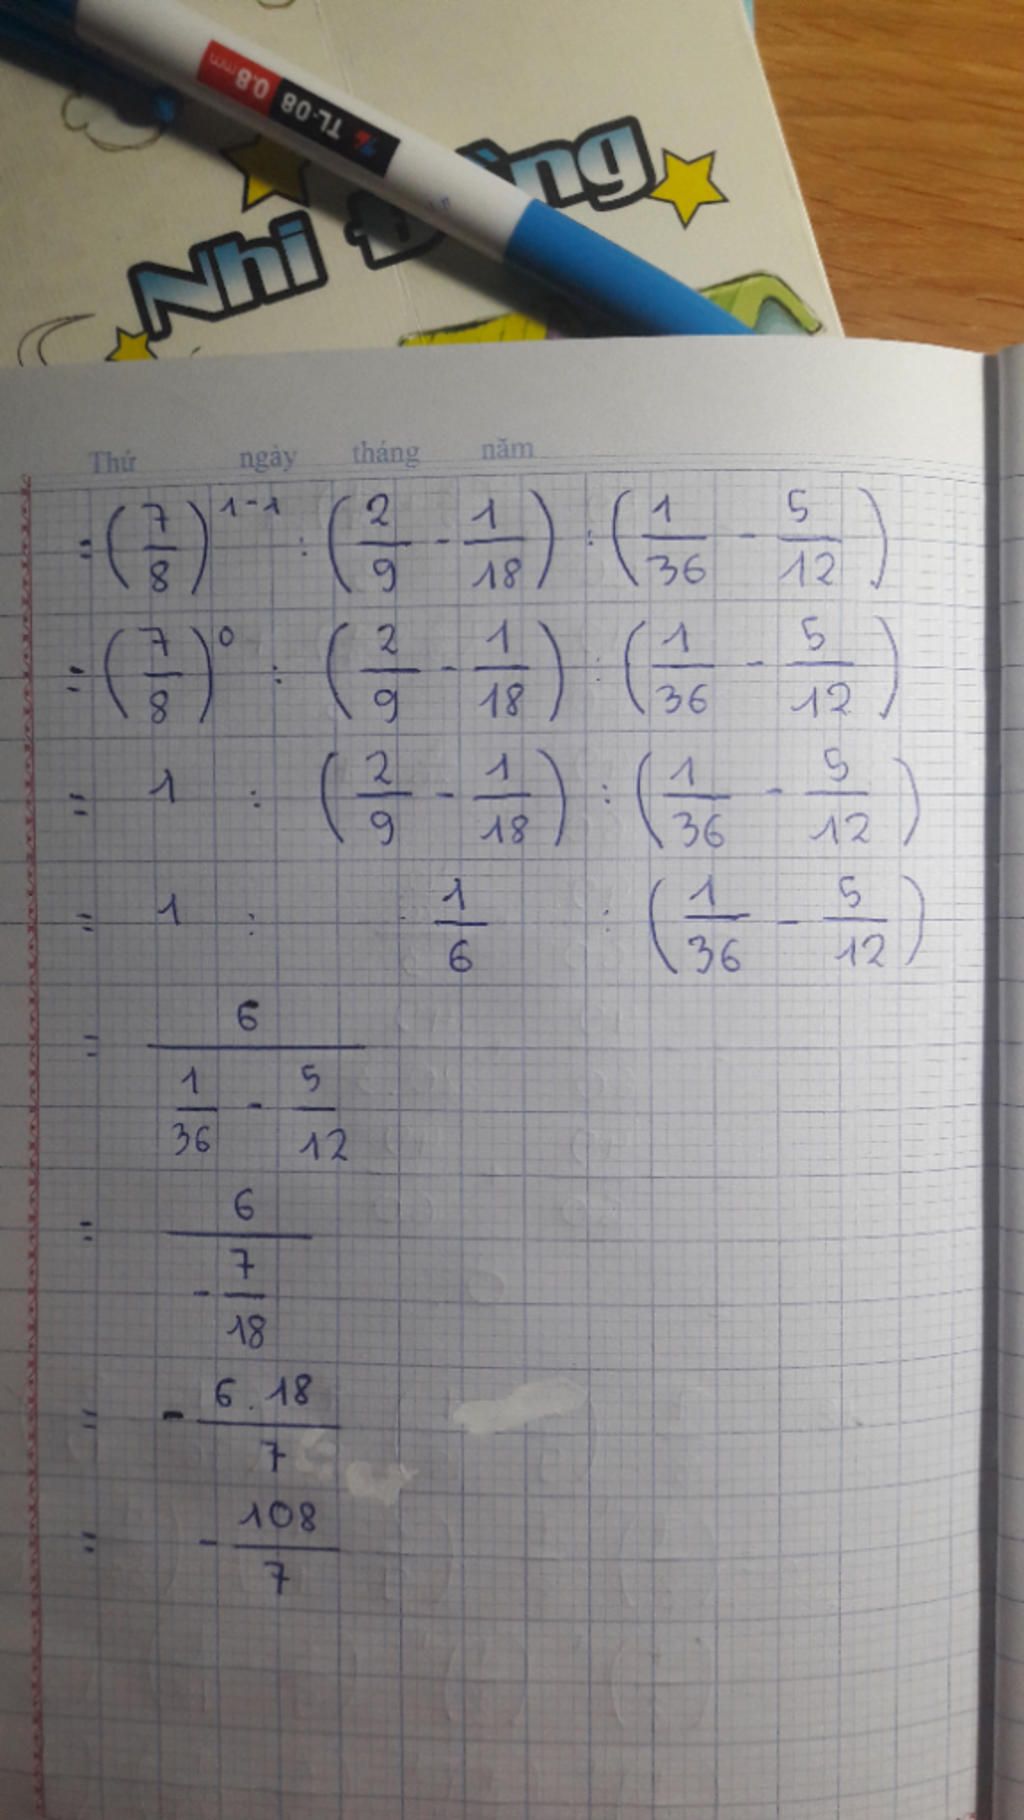 0.8mm TL-08
Nhi Đồng
Thứ ngày tháng năm
= (7/8)^1-1 : (2/9 - 1/18) : (1/36 - 5/12)
= (7/8)^0 : (2/9 - 1/18) : (1/36 - 5/12)
= 1 : (2/9 - 1/18) : (1/36 - 5/12)
= 1 : 1/6 : (1/36 - 5/12)
= 6/(1/36 - 5/12)
= 6/(-7/18)
= - 6.18/7
= - 108/7